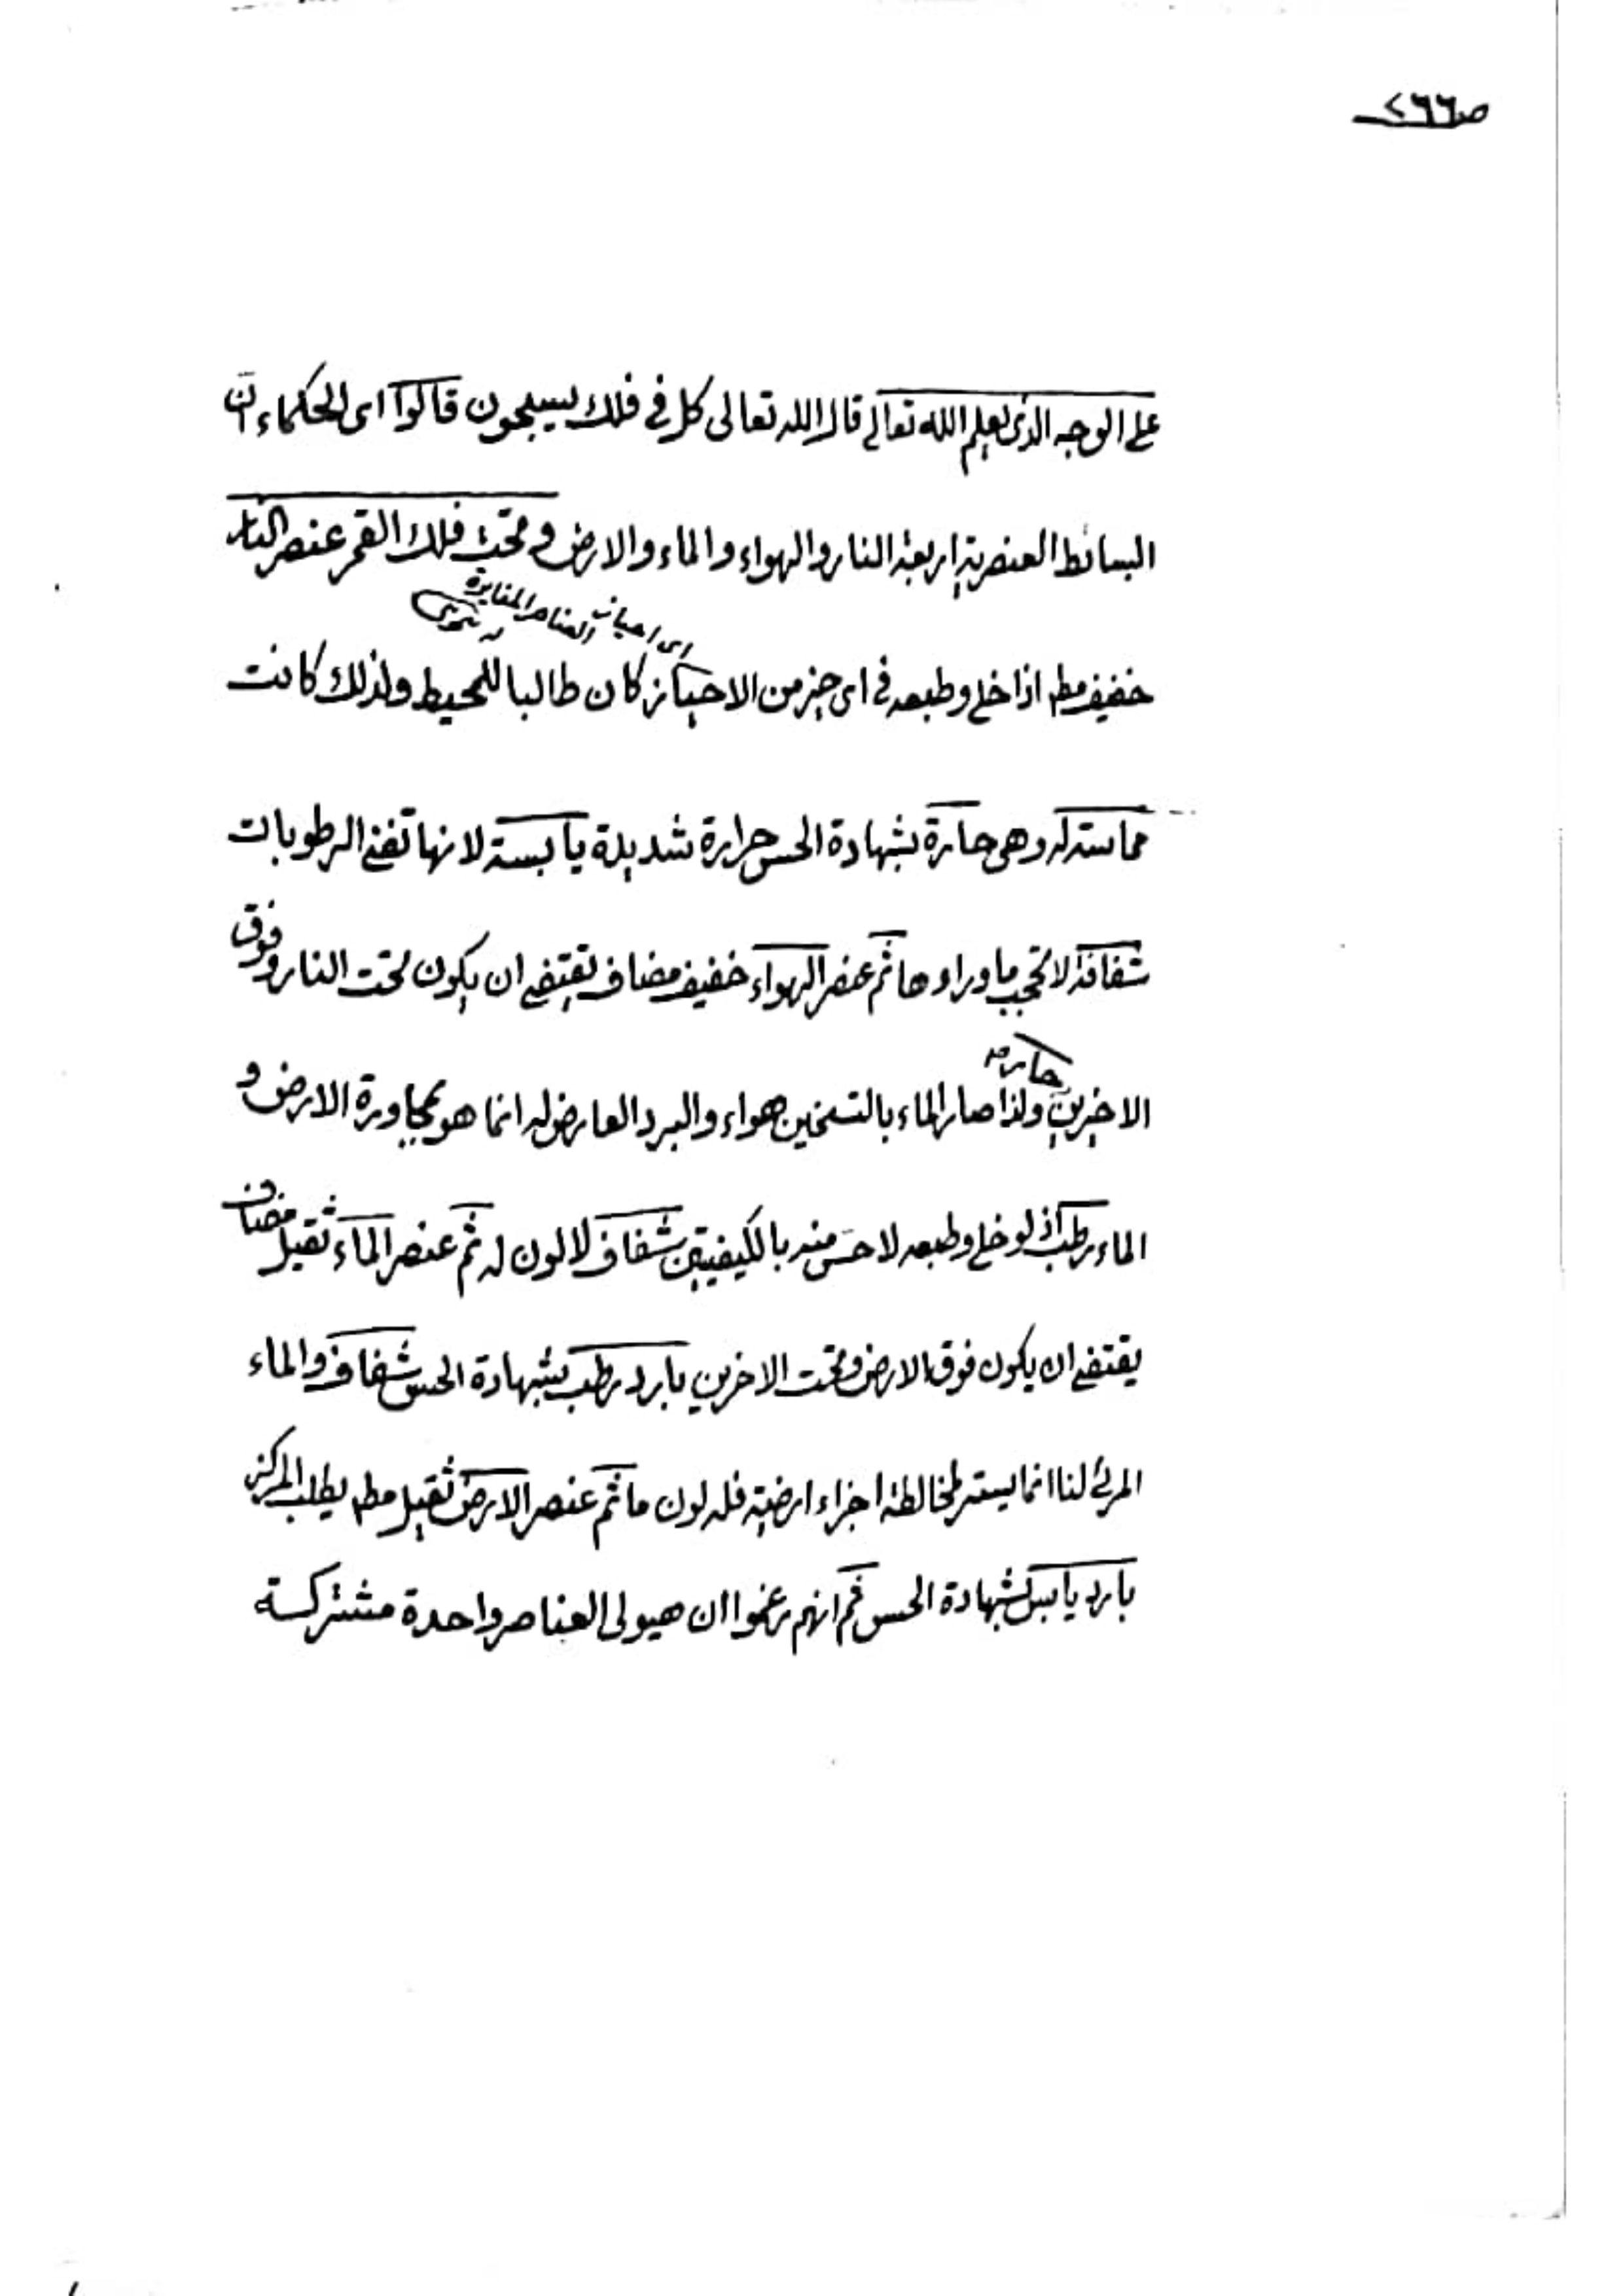 ص٢٦٦
على الوجه الذى يعلم الله تعالى قال الله تعالى كل فى فلك يسبحون قالوا اى الحكماء ان
البسائط العنصرية اربعة النار والهواء والماء والارض وتحت فلك القمر عنصر النار
اى احياز العناصر المغايرة له
خفيف مط اذا خلى وطبعه فى اى حيز من الاحياز كان طالبا للمحيط ولذلك كانت
مماسة له وهى حارة بشهادة الحس حرارة شديدة يابسة لانها تفنى الرطوبات
شفافة لا تحجب ما وراءها ثم عنصر الهواء خفيف مضاف يقتضى ان يكون تحت النار وفوق
حار
الاخيرين ولذا صار الماء بالتسخين هواء والبرد العارض له انما هو بمجاورة الارض و
الماء رطب اذ لو خلى وطبعه لاحس منه بالكيفيتين شفاف لا لون له ثم عنصر الماء ثقيل مضاف
يقتضى ان يكون فوق الارض وتحت الاخرين بارد رطب بشهادة الحس شفاف والماء
المرئى لنا انما يستر لمخالطة اجزاء ارضية فله لون ما ثم عنصر الارض ثقيل مط يطلب المركز
بارد يابس بشهادة الحس ثم انهم زعموا ان هيولى العناصر واحدة مشتركة